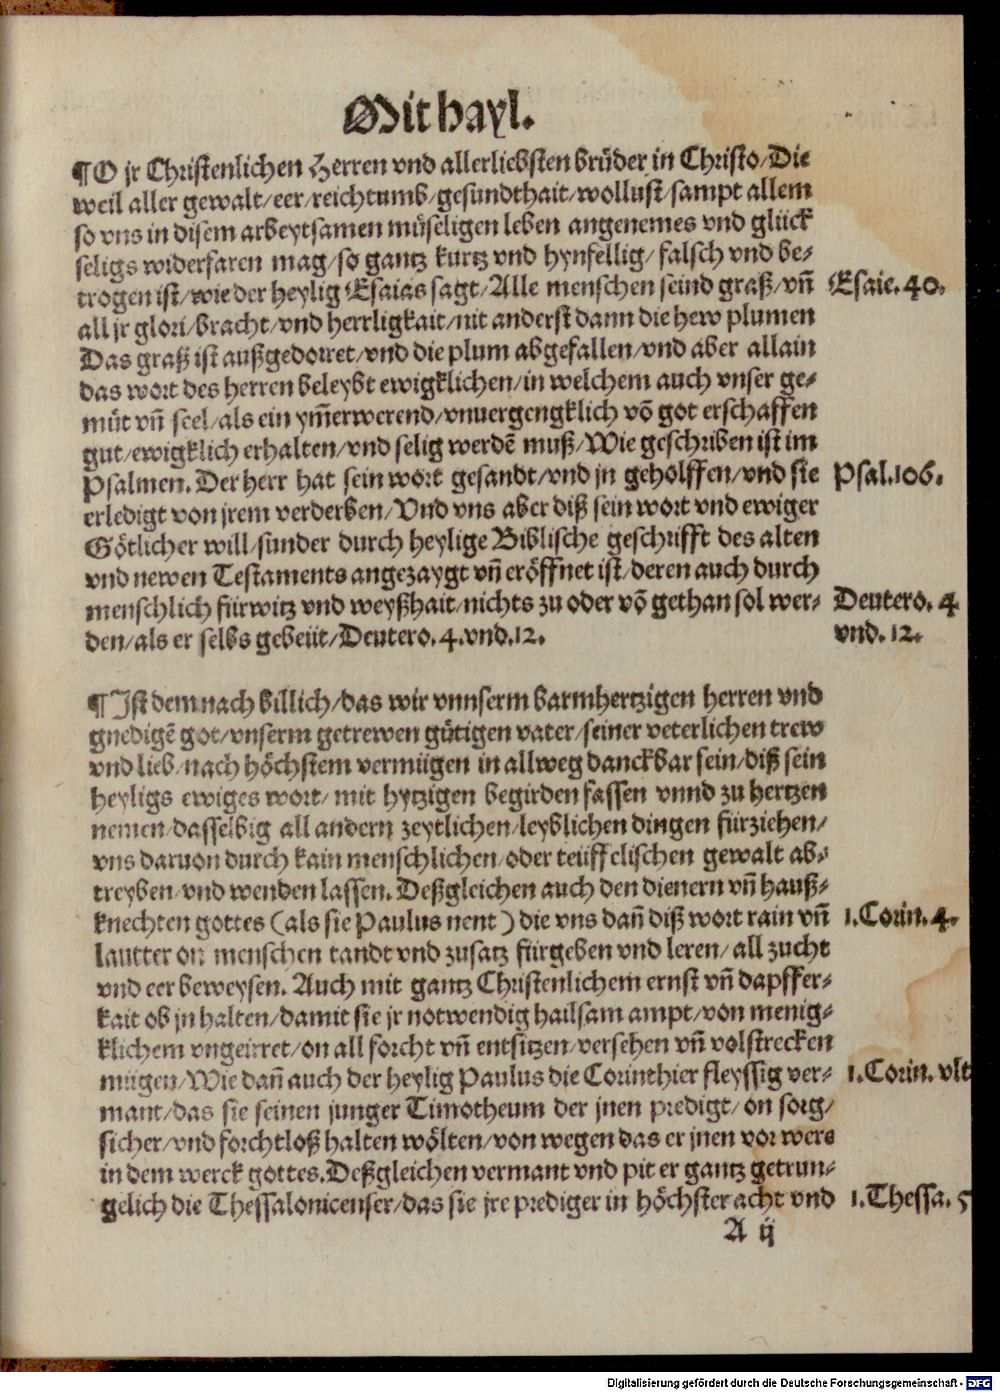 Mit hayl.
¶O jr Christenlichen Herren vnd allerliebsten brüder in Christo/Die
weil aller gewalt/eer/reichtumb/gesundthait/wollust/sampt allem
so vns in disem arbeytsamen müseligen leben angenemes vnd glück
seligs widerfaren mag/so gantz kurtz vnd hynfellig/falsch vnd be-
trogen ist/wie der heylig Esaias sagt/Alle menschen seind graß/vn̄ Esaie. 40.
all jr glori/bracht/vnd herrligkait/nit anderst dann die hew plumen
Das graß ist außgedorret/vnd die plum abgefallen/vnd aber allain
das wort des herren beleybt ewigklichen/in welchem auch vnser ge-
müt vn̄ seel/als ein ym̄erwerend/vnuergengklich vō got erschaffen
gut/ewigklich erhalten/vnd selig werdē muß/Wie geschriben ist im
Psalmen. Der herr hat sein wort gesandt/vnd jn geholffen/vnd sie Psal.106.
erledigt von jrem verderben/Vnd vns aber diß sein wort vnd ewiger
Götlicher will/sunder durch heylige Biblische geschrifft des alten
vnd newen Testaments angezaygt vn̄ eröffnet ist/deren auch durch
menschlich fürwitz vnd weyßhait/nichts zu oder vō gethan sol wer- Deutero. 4
den/als er selbs gebeüt/Deutero. 4.vnd.12. vnd. 12.
¶Ist dem nach billich/das wir vnnserm barmhertzigen herren vnd
gnedigē got/vnserm getrewen gütigen vater/seiner veterlichen trew
vnd lieb/nach höchstem vermügen in allweg danckbar sein/diß sein
heyligs ewiges wort/mit hytzigen begirden fassen vnnd zu hertzen
nemen/dasselbig all andern zeytlichen/leyblichen dingen fürziehen/
vns daruon durch kain menschlichen/oder teüffelischen gewalt ab-
treyben/vnd wenden lassen. Deßgleichen auch den dienern vn̄ hauß-
knechten gottes (als sie Paulus nent) die vns dan̄ diß wort rain vn̄ 1.Corin. 4.
lautter on menschen tandt vnd zusatz fürgeben vnd leren/all zucht
vnd eer beweysen. Auch mit gantz Christenlichem ernst vn̄ dapffer-
kait ob jn halten/damit sie jr notwendig hailsam ampt/von menig-
klichem vngeirret/on all forcht vn̄ entsitzen/versehen vn̄ volstrecken
mügen/Wie dan̄ auch der heylig Paulus die Corinthier fleyssig ver- 1.Corin. vlt
mant/das sie seinen junger Timotheum der jnen predigt/on sorg/
sicher/vnd forchtloß halten wölten/von wegen das er jnen vor were
in dem werck gottes. Deßgleichen vermant vnd pit er gantz getrun-
gelich die Thessalonicenser/das sie jre prediger in höchster acht vnd 1.Thessa. 5
A ij
Digitalisierung gefördert durch die Deutsche Forschungsgemeinschaft - DFG